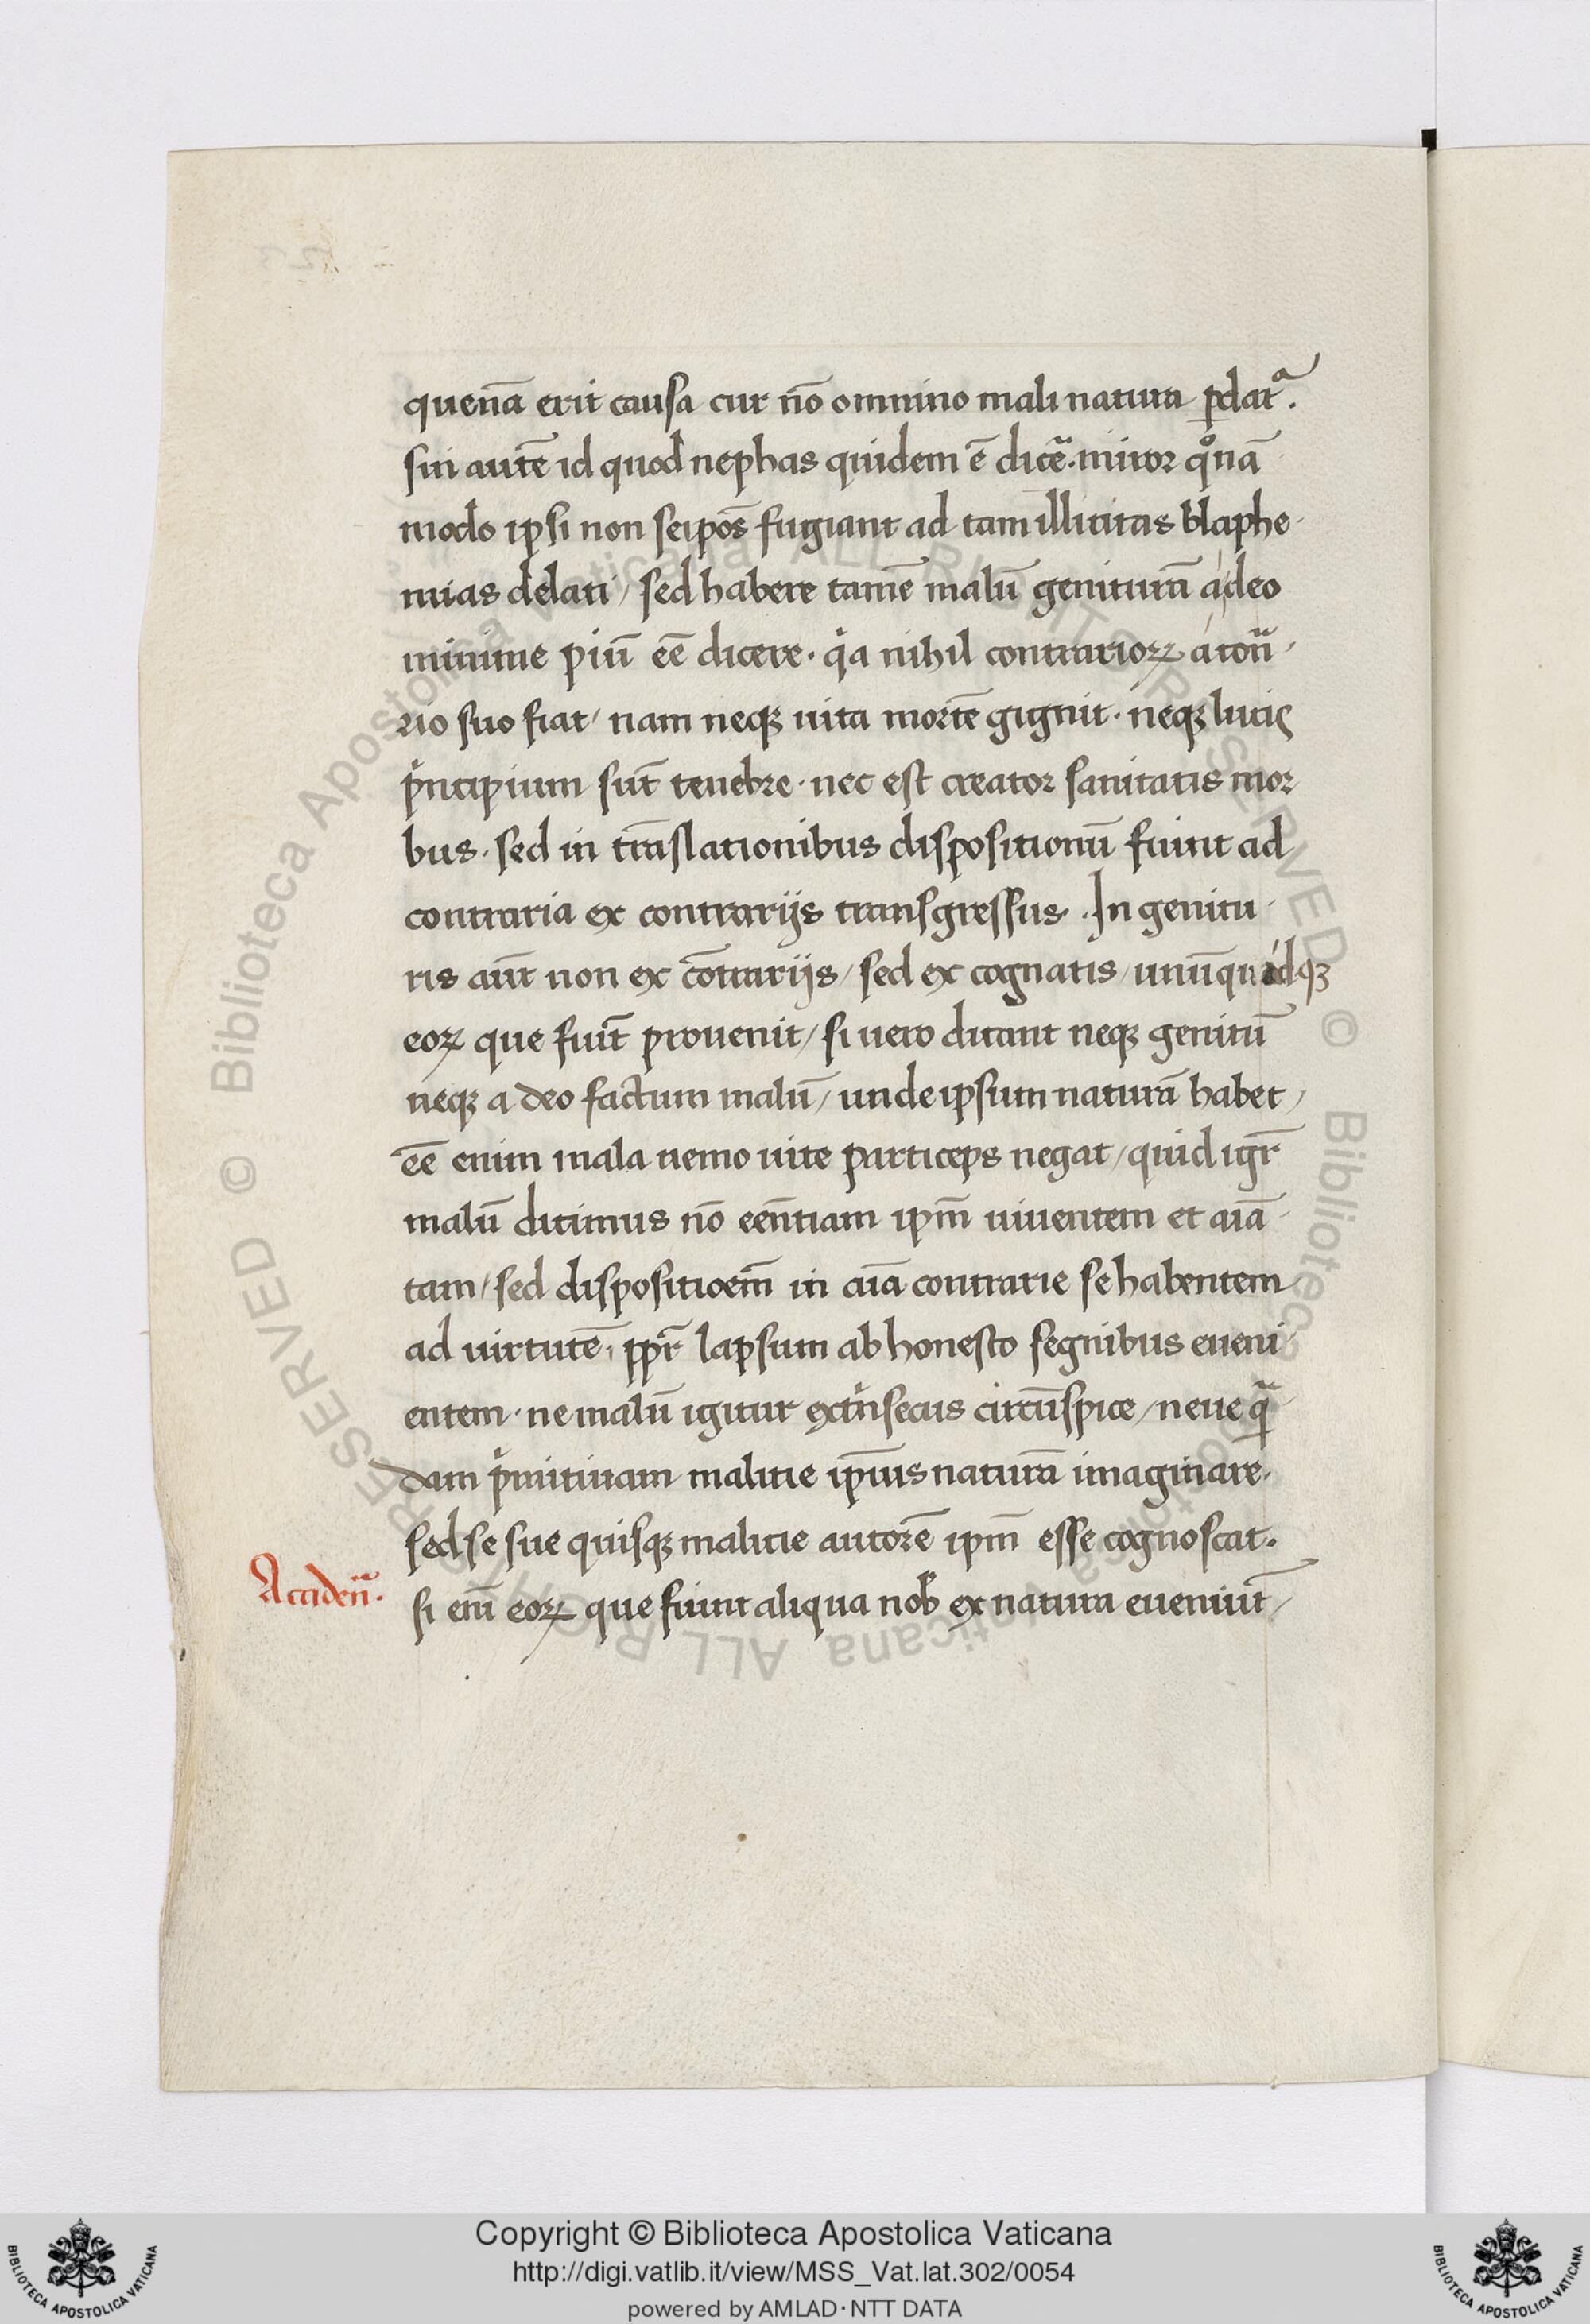 quenā erit causa cur nō omnino mali natura ꝑdatᵃ.
sin autē id quod nephas quidem ē dicēᵃ. miror qͦnā
modo ipsi non seipōs fugiant ad tam illicitas blaphe
mias delati / sed habere tamē malū genituram̄ a deo
minime piū eē dicere. qͥa nihil contrarioꝝ a conᵃ̄
rio suo fiat / nam neqꝫ uita mortē gignit. neqꝫ lucis
pͥncipium sūt tenebre. nec est creator sanitatis mor
bus. sed in trāslationibus dispositionū fiunt ad
contraria ex contrarijs transgressus. In genitu
ris aūt non ex cōtrarijs / sed ex cognatis / unūquadqꝫ
eoꝝ que fiūt prouenit / si uero dicant neqꝫ genitū
neqꝫ a deo factum malū / unde ipsum naturā habet /
eē enim mala nemo uite particeps negat / quid igr̄
malū dicimus nō eēntiam ipm̄ uiuentem et aīa
tam / sed dispositioem̄ in aīa contrarie se habentem
ad uirtutē, ꝓpr̄ lapsum ab honesto segnibus eueni
entem. ne malū igitur extͥnsecus circūspice / neue qᵃ̄
dam pͥmitiuam malitie ipīus naturā imaginare.
sed se sue quisqꝫ malitie autorē ipm̄ esse cognoscat.
Acciden̄ᵃ.
si enī eoꝝ que fiunt aliqua nob̄ ex natura eueniūt /
Copyright © Biblioteca Apostolica Vaticana
http://digi.vatlib.it/view/MSS_Vat.lat.302/0054
powered by AMLAD·NTT DATA
BIBLIOTECA APOSTOLICA VATICANA
BIBLIOTECA APOSTOLICA VATICANA
© Biblioteca Apostolica Vaticana ALL RIGHTS RESERVED
© Biblioteca Apostolica Vaticana ALL RIGHTS RESERVED